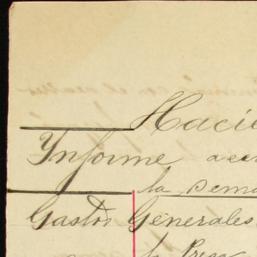 Hacie
Informe ace
la Sema
Gastos Generales
la Presa